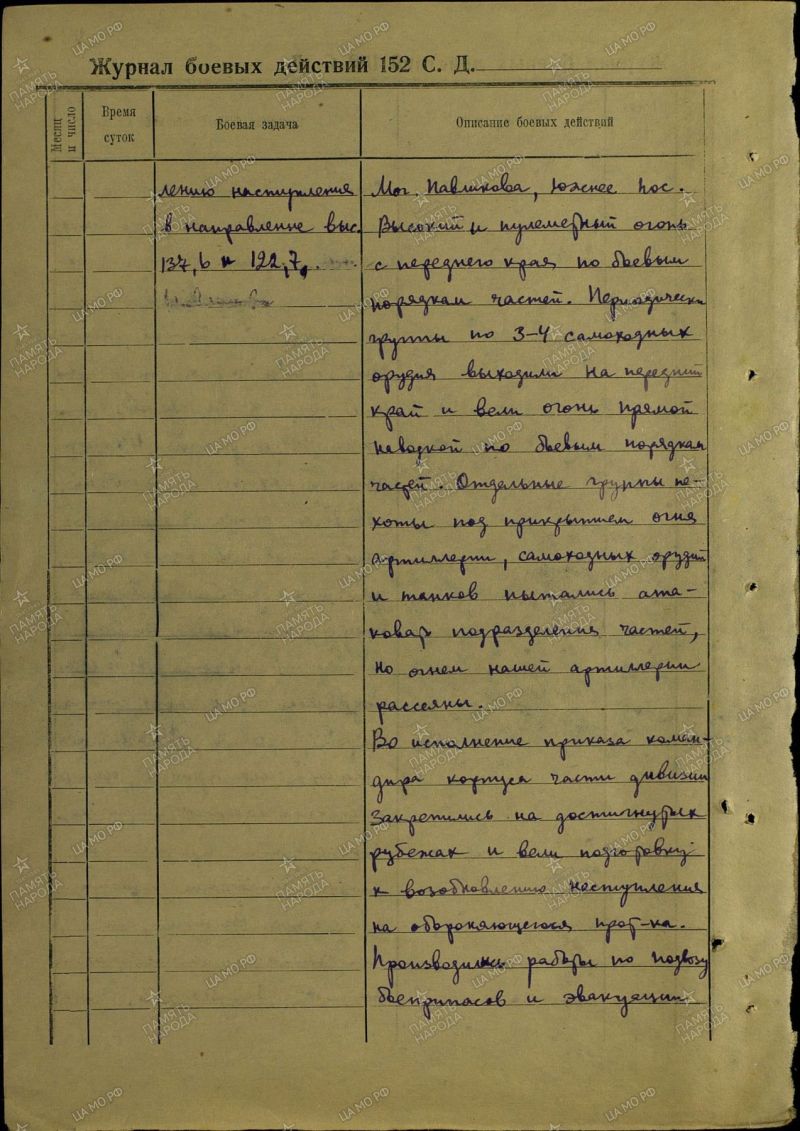 Журнал боевых действий 152 С. Д.
Месяц и число
Время суток
Боевая задача
Описание боевых действий
лению наступления
в направление выс.
137,6 и 122,7,
Мог. Павликова, южнее пос.
Высокий и пулеметный огонь
с переднего края по боевым
порядкам частей. Периодически
группы по 3-4 самоходных
орудия выходили на передний
край и вели огонь прямой
наводкой по боевым порядкам
частей. Отдельные группы пе-
хоты под прикрытием огня
артиллерии, самоходных орудий
и танков пытались ата-
ковать подразделения частей,
но огнем нашей артиллерии
рассеяны.
Во исполнение приказа коман-
дира корпуса части дивизии
закрепились на достигнутых
рубежах и вели подготовку
к возобновлению наступления
на обороняющегося прот-ка.
Производились работы по подвозу
боеприпасов и эвакуации